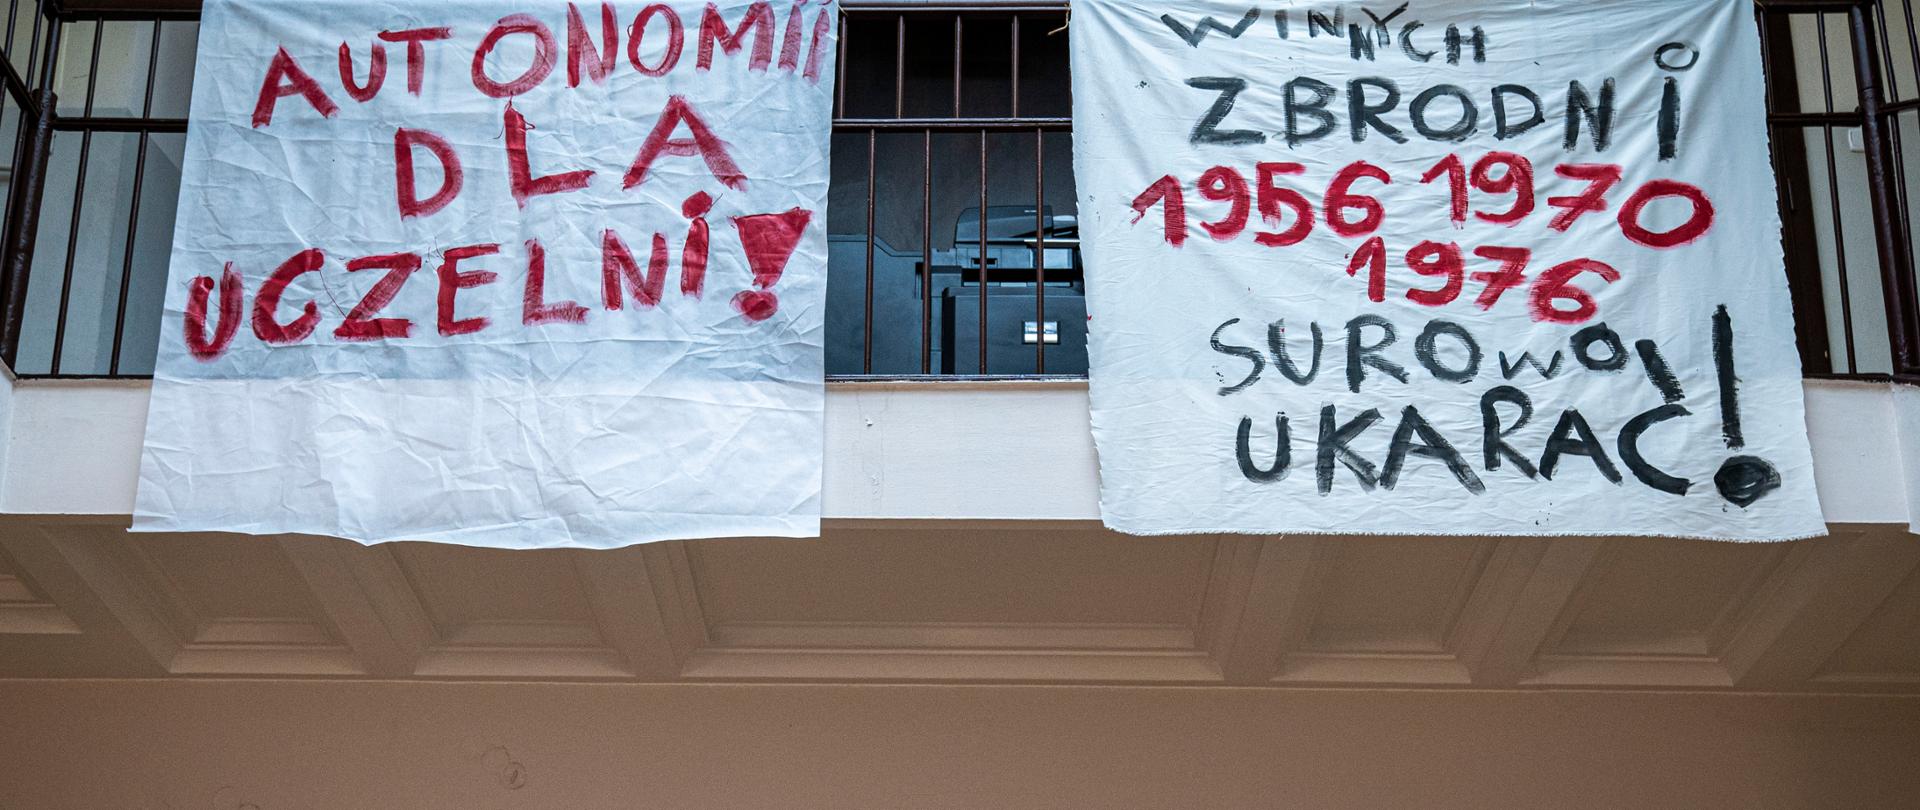 AUTONOMII
DLA
UCZELNI!
WINNYCH
ZBRODNI
1956 1970
1976
SUROWO
UKARAĆ!